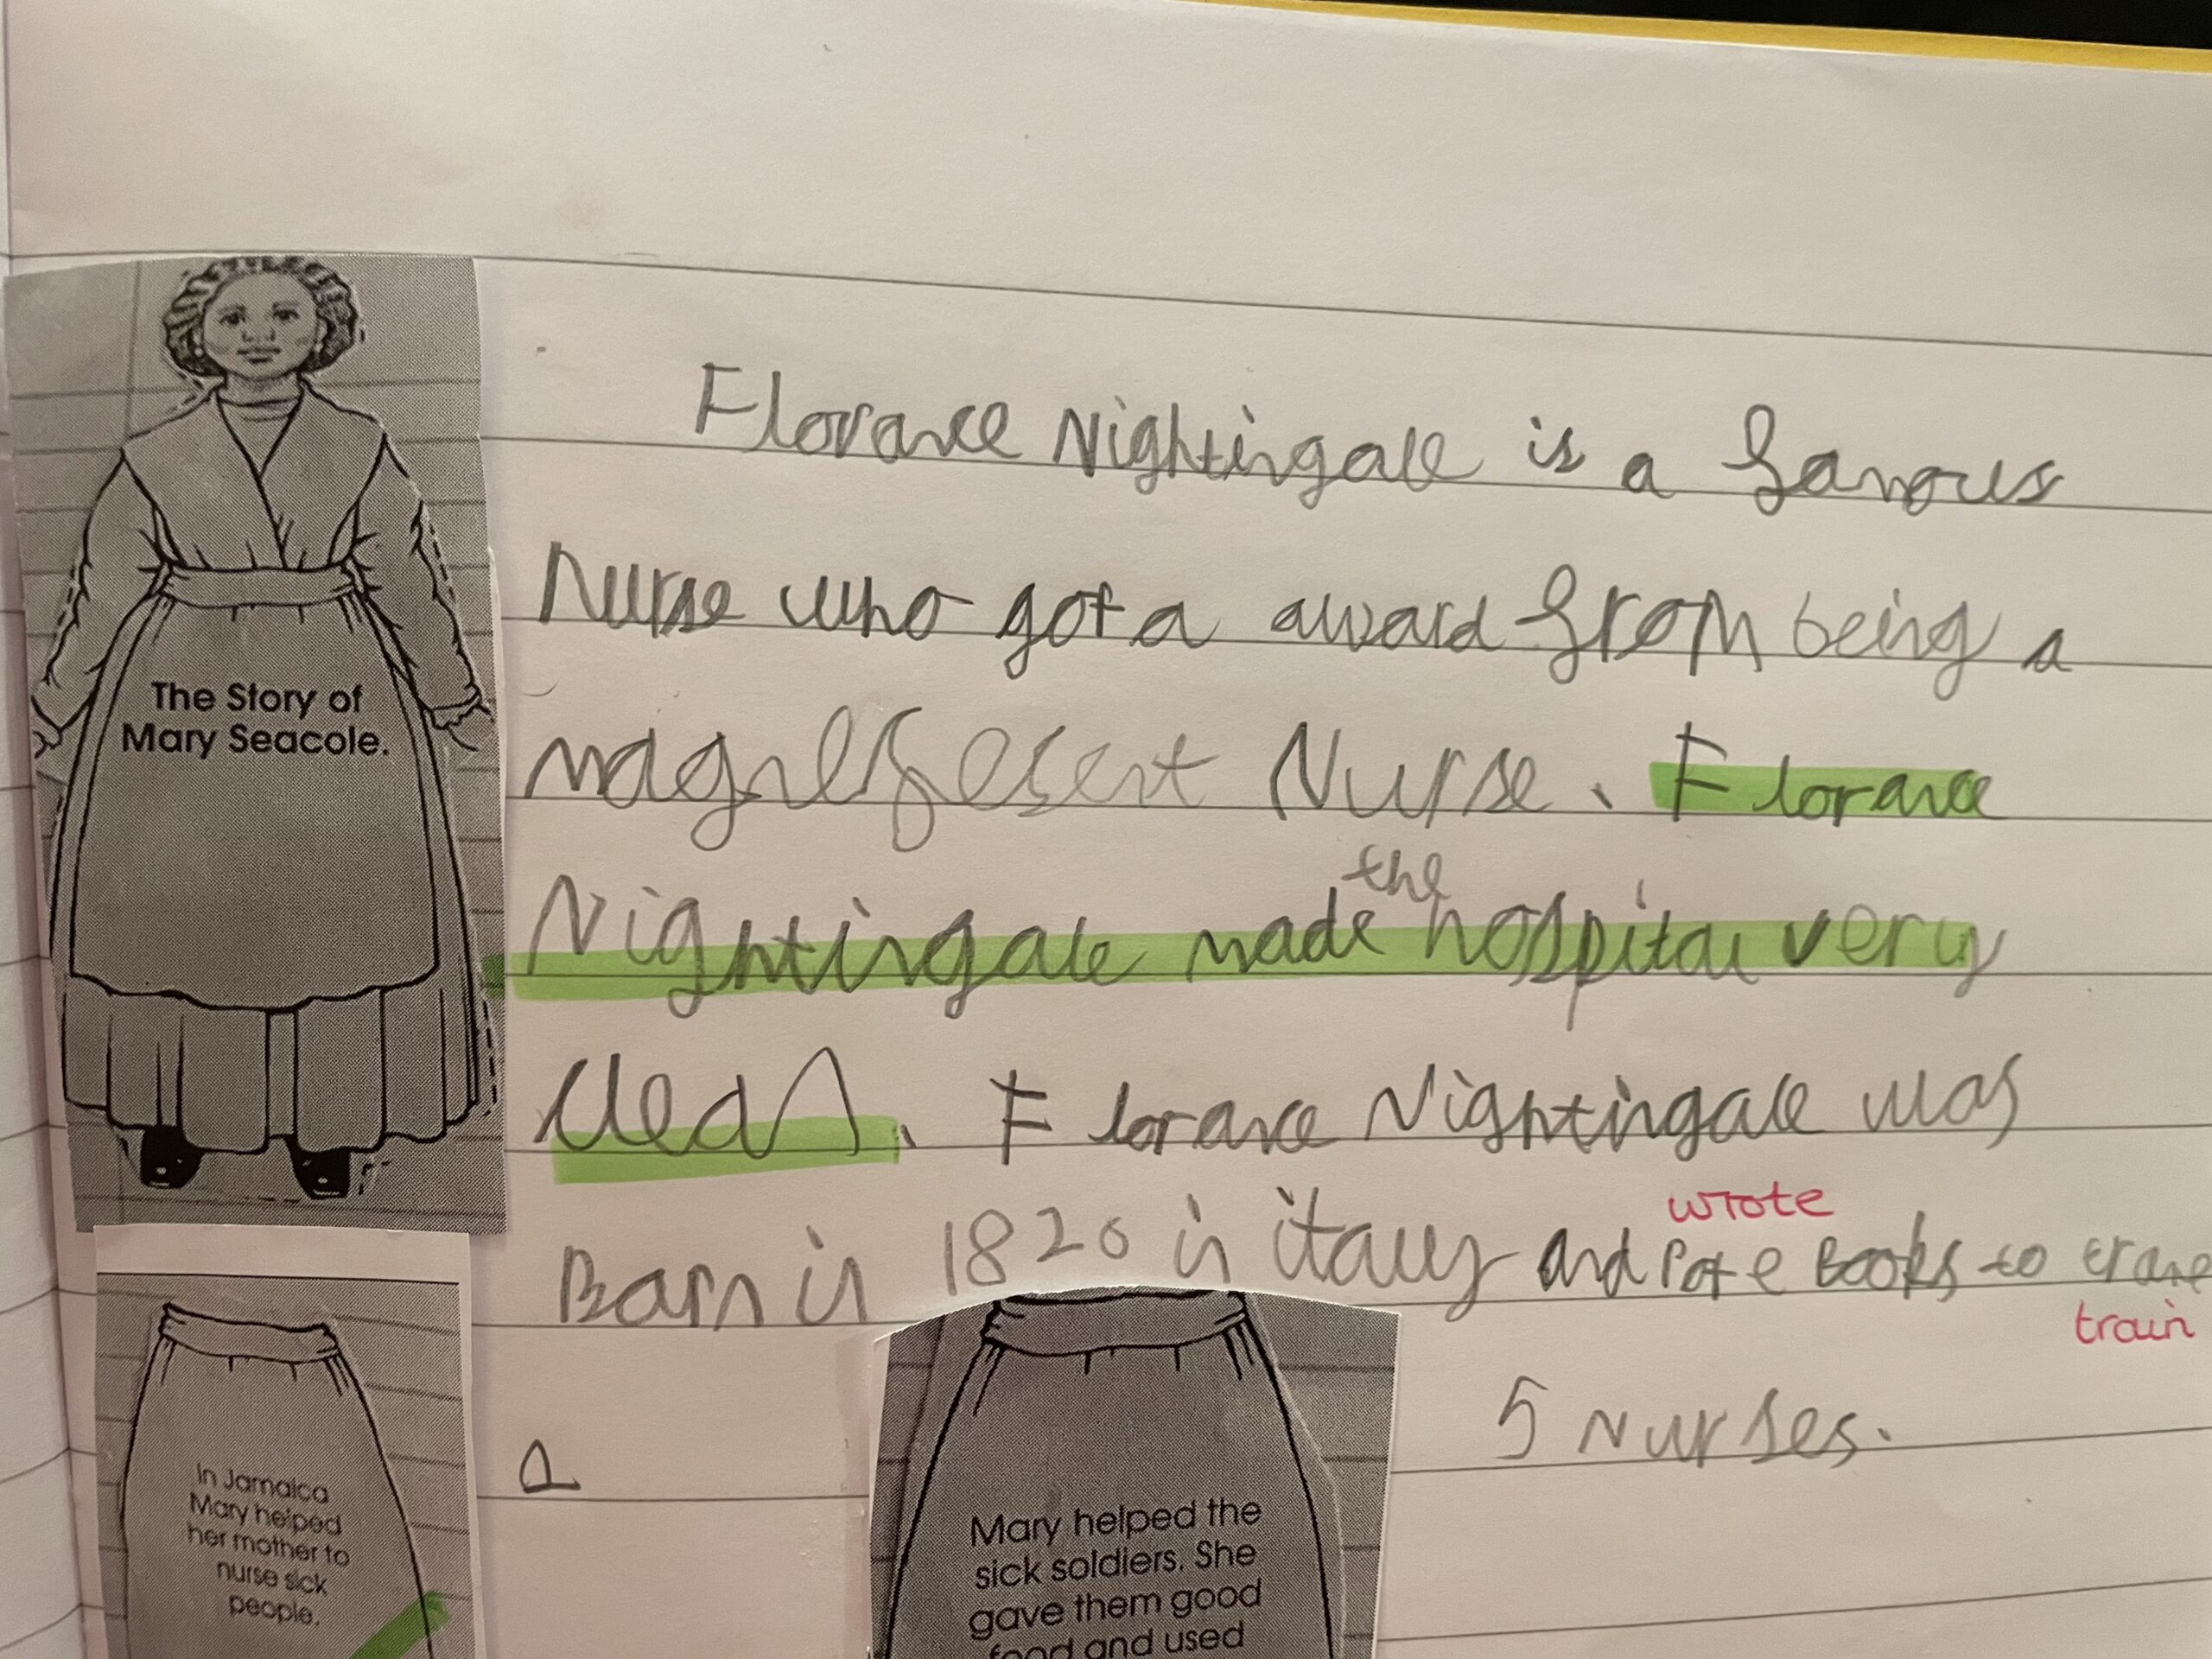 The Story of
Mary Seacole.
Florance Nightingale is a famous
Nurse who got a award from being a
magnefesent Nurse. Florance
the
Nightingale made hospital very
clean. Florance Nightingale was
wrote
Born in 1820 in italy and Books to trane
train
5 Nurses.
a
In Jamaica
Mary helped
her mother to
nurse sick
people.
Mary helped the
sick soldiers. She
gave them good
food and used